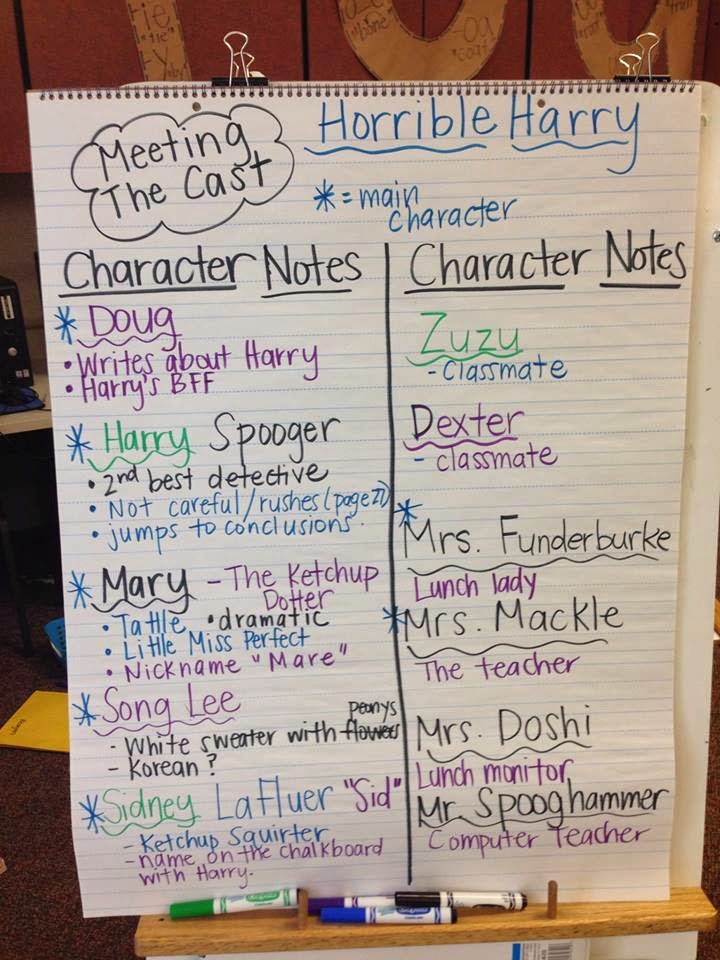 Meeting
The Cast
Horrible Harry
* = main
character
Character Notes
* Doug
• Writes about Harry
• Harry's BFF
* Harry Spooger
• 2nd best detective
• Not careful/rushes (page 27)
• jumps to conclusions.
* Mary - The Ketchup
Dotter
• Tattle • dramatic
• Little Miss Perfect
• Nickname "Mare"
* Song Lee
peonys
- White sweater with flowers
- Korean?
* Sidney LaFluer "Sid"
- Ketchup Squirter
- name on the chalkboard
with Harry.
Character Notes
Zuzu
- Classmate
Dexter
- classmate
* Mrs. Funderburke
Lunch lady
* Mrs. Mackle
The teacher
Mrs. Doshi
Lunch monitor
Mr. Spooghammer
Computer Teacher